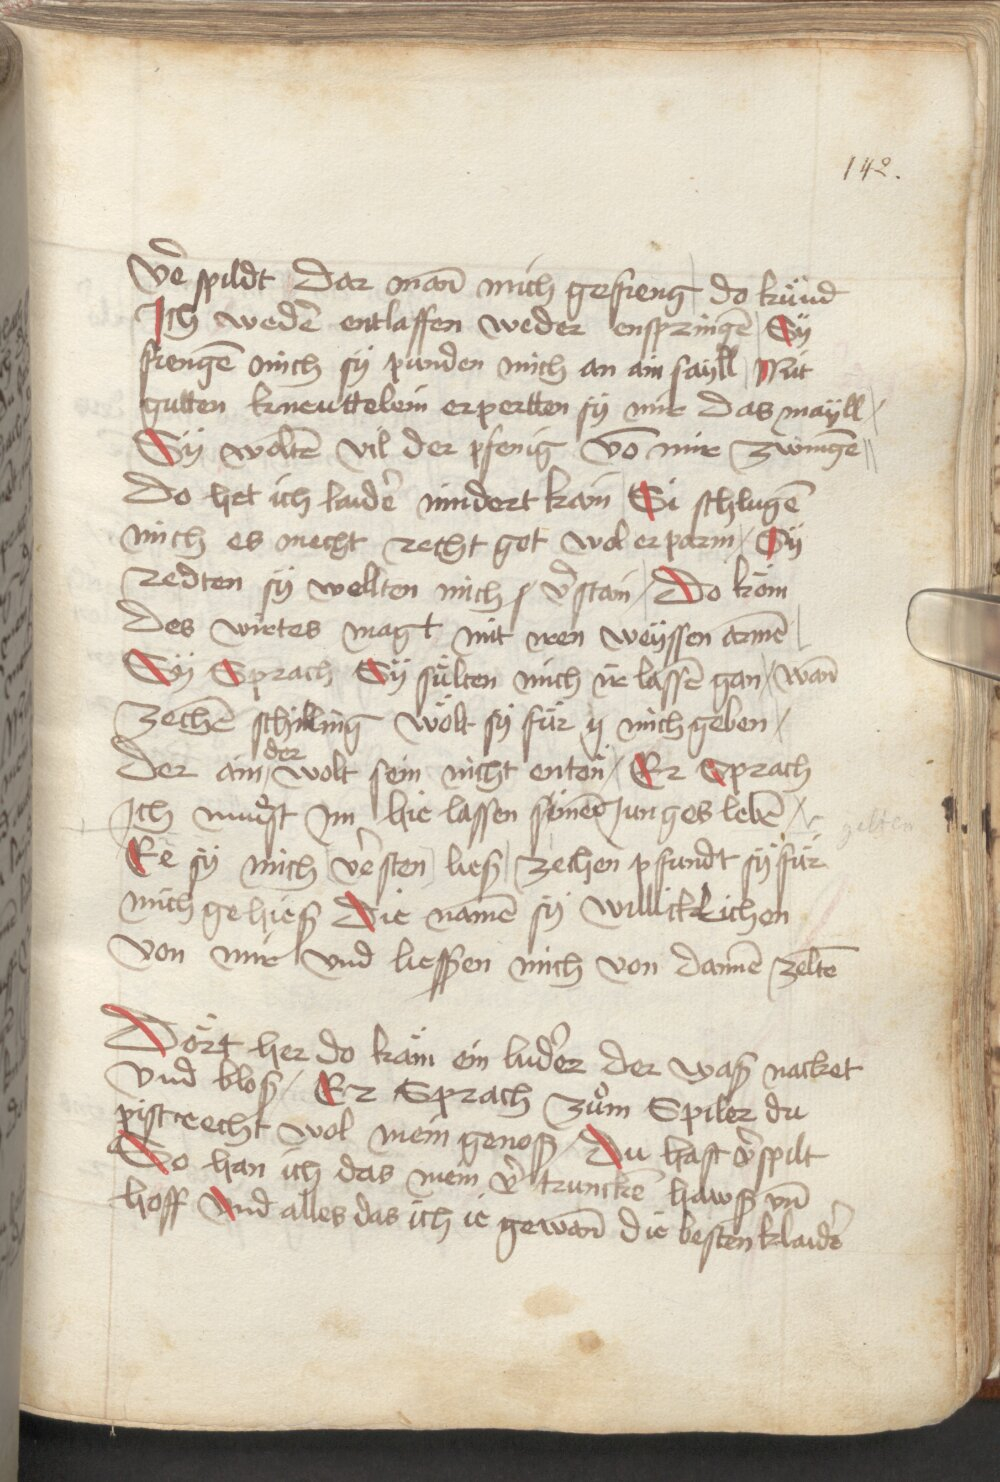 142.
vē spildt Dar man̄ mich gefieng / do kuͤnd
Ich wedē entlaffen weder enspringē / Sÿ
fiengē mich sÿ punden mich an ain sayll / Mit
gutten kneuttelein erpertten sÿ mir das mayll /
Sÿ woltē vil der pfenig vō mir zwingē //
Do het ich laidē nindert kain / Si schlugē
mich es mecht recht got wol erparm / Sÿ
redten sÿ wellten mich / v̄stain / Do kom
des wirtes magt mit iren weyssen armē /
Sÿ Sprach Sÿ suͤlten mich ir lassē gan / wan̄
zechē schilling woͤlt sÿ fuͤr mich geben /
Der ain / der wolt sein nicht enten / Er Sprach
Ich muͦst im hie lassen sÿmē Junges lebē /
zelten
Ee sÿ mich v̄sten liesß / zechen pfundt sÿ fuͤr
mich gehiesß Die namē sÿ willicklichen
von mir vnd liessen mich von dannē zeltē
Doͤrt her do kam ein ludēr der wasß nacket
vnd blosß / Er Sprach zuͦm Spiler du
pist recht wol mein genosß / Du hast v̄spilt
So han ich das mein v̄truncke̅ hawsß vn̄
hoff vnd alles das ich ie gewan̄ die besten klaidē